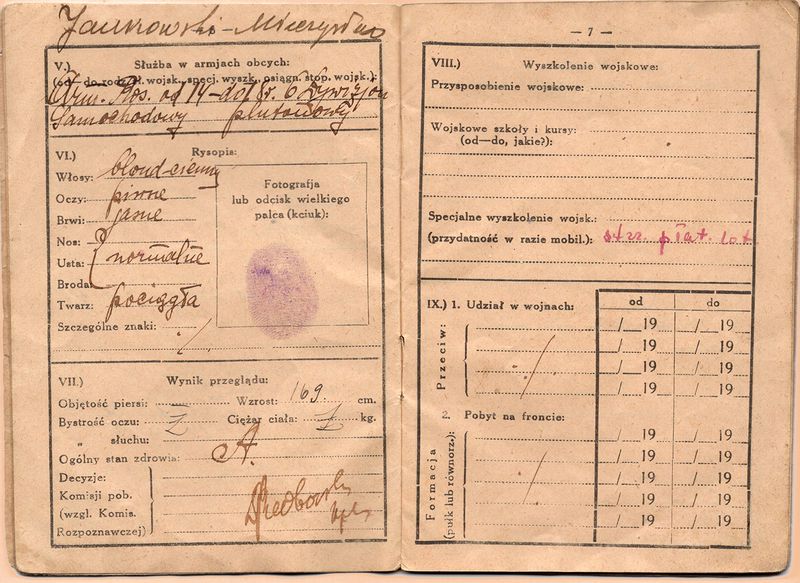 Jankowski-Mieczysław
V.) Służba w armjach obcych:
(od—do, rodzaj wojsk., specj. wyszk., osiągn. stop. wojsk.):
Arm. Ros. od 14-do 18 r. 6 Dywizjon
Samochodowy plutonowy
VI.) Rysopis:
Włosy: blond-ciemny
Oczy: piwne
Brwi: jasne
Nos:
Usta: normalne
Broda:
Twarz: pociągła
Szczególne znaki: ./.
Fotografja
lub odcisk wielkiego
palca (kciuk):
VII.) Wynik przeglądu:
Objętość piersi: — Wzrost: 169 cm.
Bystrość oczu: Ciężar ciała: kg.
„ słuchu:
Ogólny stan zdrowia: A.
Decyzje:
Komisji pob.
(wzgl. Komis.
Rozpoznawczej)
— 7 —
VIII.) Wyszkolenie wojskowe:
Przysposobienie wojskowe:
Wojskowe szkoły i kursy:
(od—do, jakie?):
Specjalne wyszkolenie wojsk.:
(przydatność w razie mobil.): strz. płat. lot
IX.) 1. Udział w wojnach: od do
Przeciw:
/ 19 / 19
/ 19 / 19
./. / 19 / 19
/ 19 / 19
2. Pobyt na froncie:
Formacja
(pułk lub równorz.):
/ 19 / 19
/ 19 / 19
./. / 19 / 19
/ 19 / 19
/ 19 / 19